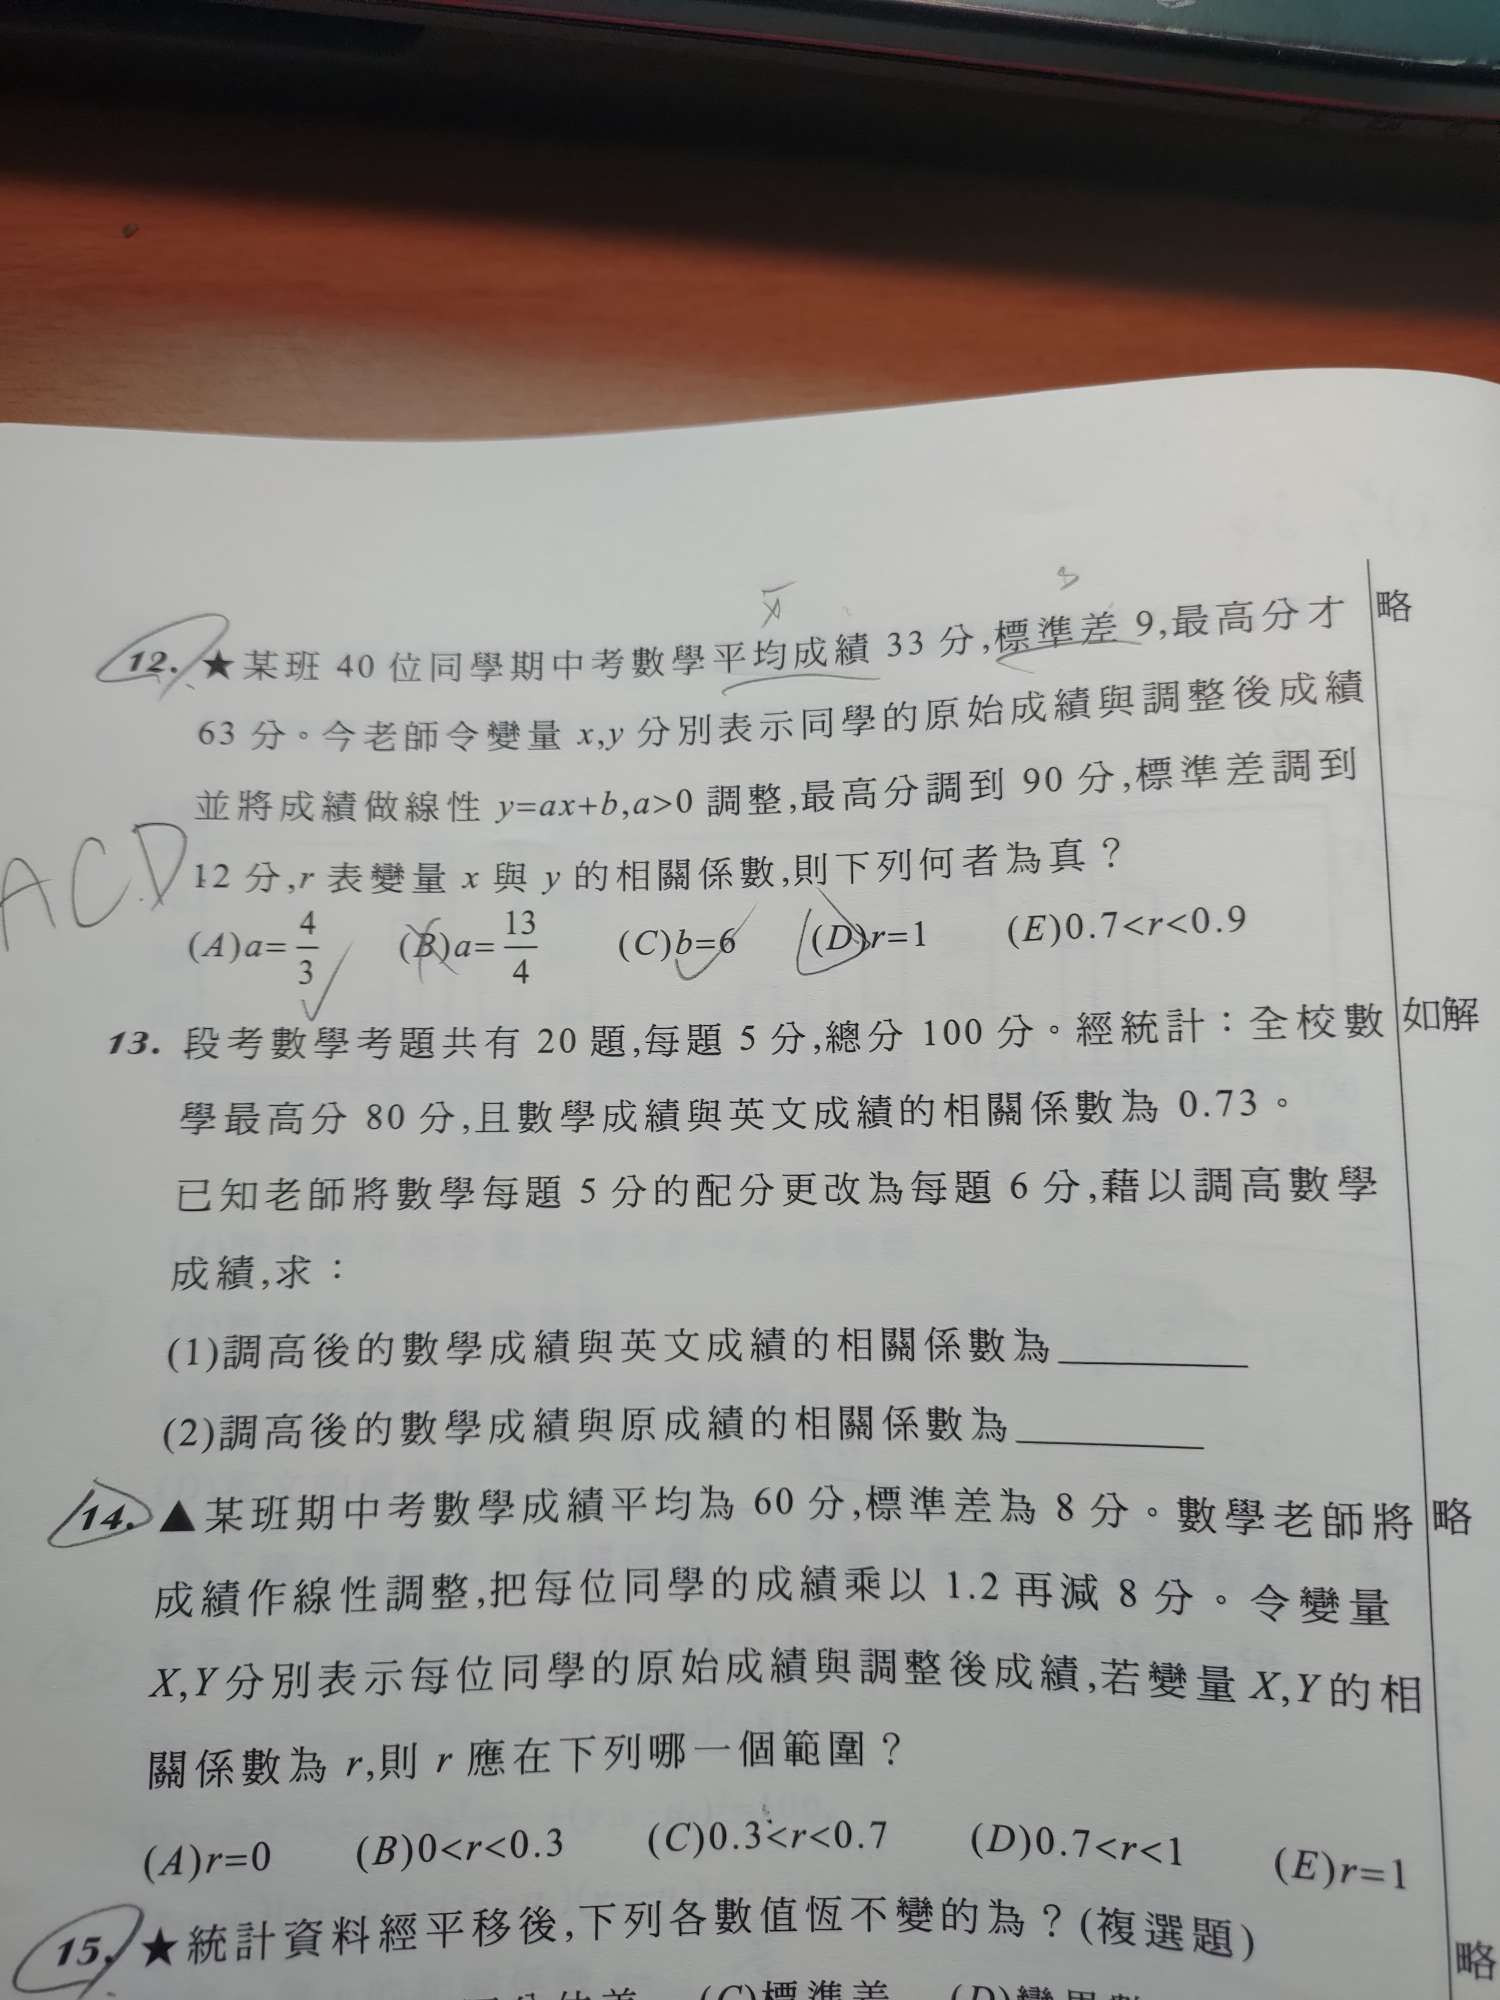 x̄
12. ★某班 40 位同學期中考數學平均成績 33 分,標準差 9,最高分才 略
63 分。今老師令變量 x,y 分別表示同學的原始成績與調整後成績
並將成績做線性 y=ax+b,a>0 調整,最高分調到 90 分,標準差調到
ACD
12 分,r 表變量 x 與 y 的相關係數,則下列何者為真？
(A)a=4/3 (B)a=13/4 (C)b=6 (D)r=1 (E)0.7<r<0.9
13. 段考數學考題共有 20 題,每題 5 分,總分 100 分。經統計：全校數 如解
學最高分 80 分,且數學成績與英文成績的相關係數為 0.73。
已知老師將數學每題 5 分的配分更改為每題 6 分,藉以調高數學
成績,求：
(1)調高後的數學成績與英文成績的相關係數為________
(2)調高後的數學成績與原成績的相關係數為________
14. ▲某班期中考數學成績平均為 60 分,標準差為 8 分。數學老師將 略
成績作線性調整,把每位同學的成績乘以 1.2 再減 8 分。令變量
X,Y分別表示每位同學的原始成績與調整後成績,若變量 X,Y的相
關係數為 r,則 r 應在下列哪一個範圍？
(A)r=0 (B)0<r<0.3 (C)0.3<r<0.7 (D)0.7<r<1 (E)r=1
15. ★統計資料經平移後,下列各數值恆不變的為？(複選題) 略
(C)標準差 (D)變異數